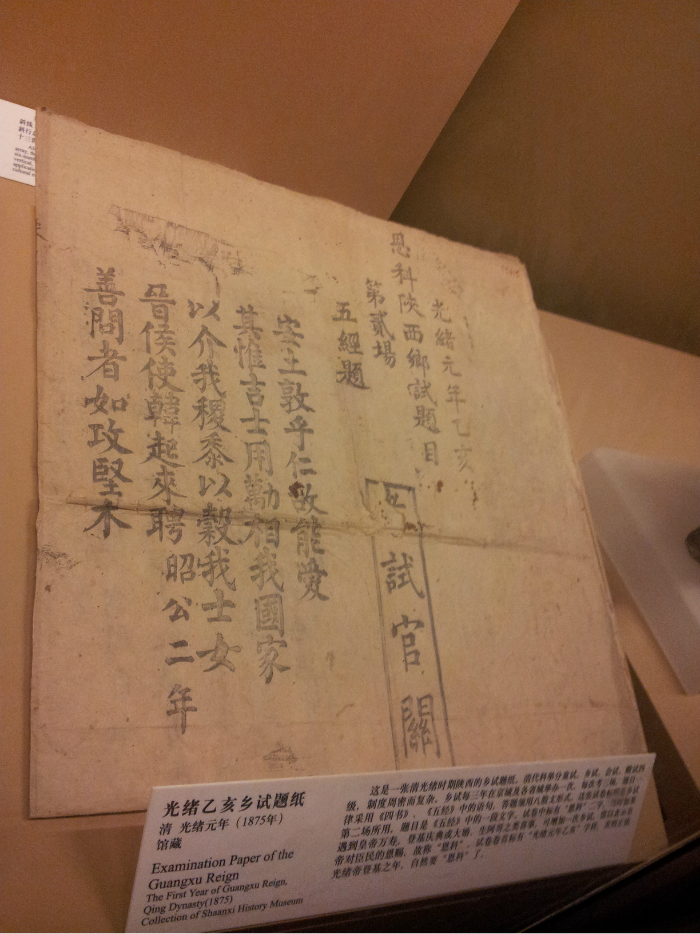 光緒元年乙亥
恩科陝西鄉試題目
第貳場
五經題
安土敦乎仁故能愛
其惟吉士用勱相我國家
以介我稷黍以穀我士女
晉侯使韓起來聘 昭公二年
善問者如攻堅木
試官關
光绪乙亥乡试题纸
清 光绪元年（1875年）
馆藏
Examination Paper of the
Guangxu Reign
The First Year of Guangxu Reign,
Qing Dynasty(1875)
Collection of Shaanxi History Museum
这是一张清光绪时期陕西的乡试题纸。清代科举分童试、乡试、会试、殿试四
级，制度周密而复杂。乡试每三年在京城及各省城举办一次，每次考三场，题目一
律采用《四书》、《五经》中的语句，答题须用八股文形式。这张试卷标明是乡试
第二场所用，题目是《五经》中的一段文字。试卷中标有“恩科”二字，
遇到皇帝万寿、登基庆典或大婚、生阿哥之类喜事，可增加一次乡试，以表示皇
帝对臣民的恩赐，故称“恩科”。试卷卷首标有“光绪元年乙亥”字样，
光绪帝登基之年，自然要“恩科”了。